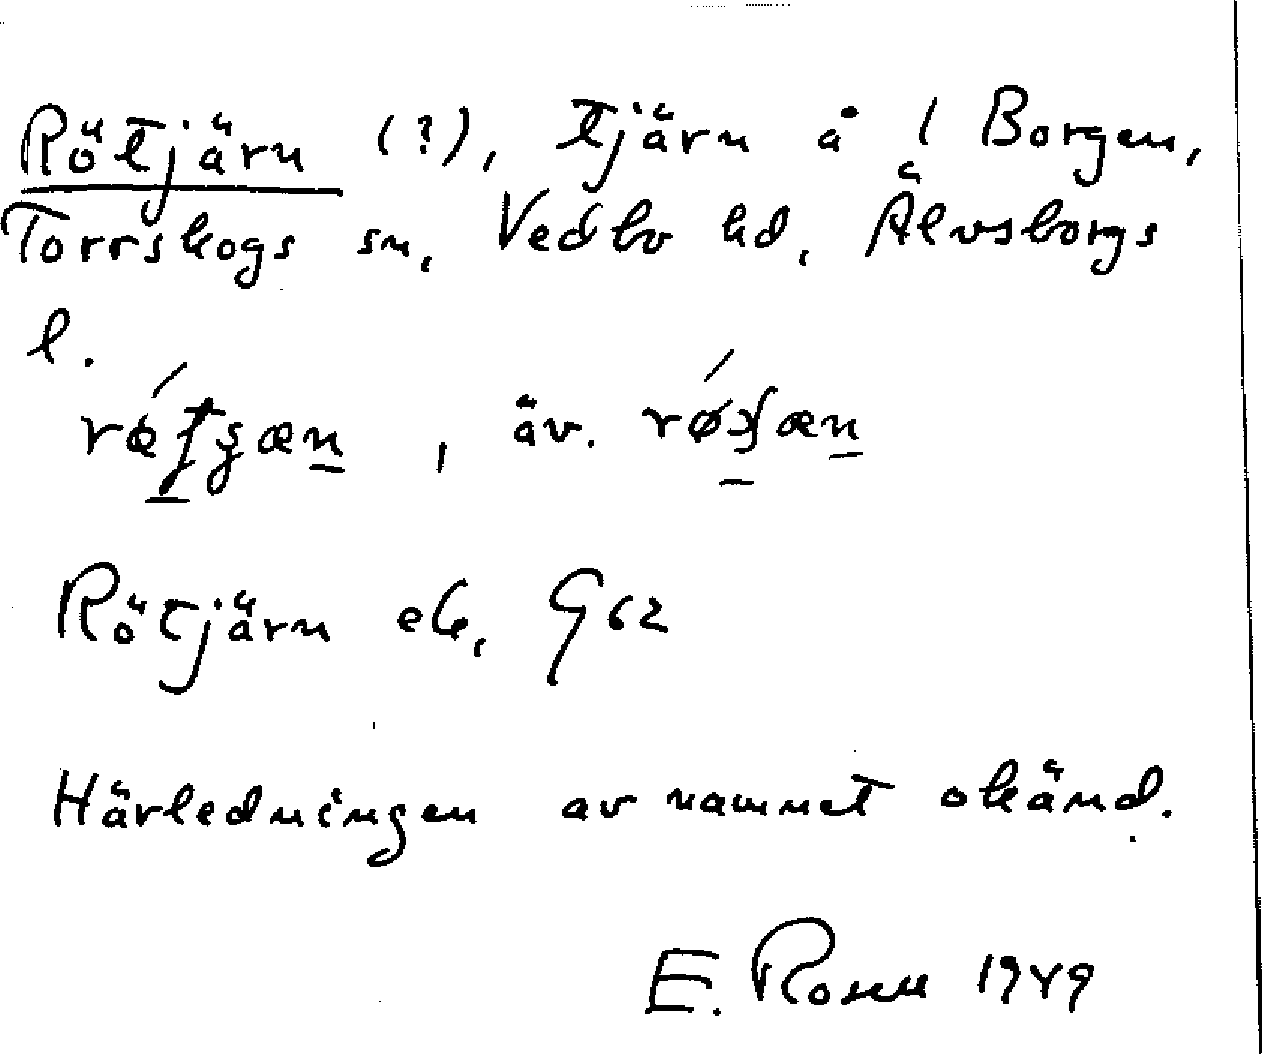 Rötjärn (?), tjärn å 1 Borgen,
Torrskogs sn, Vedbo hd, Älvsborgs
l.
, äv.
Rötjärn ek, G62
Härledningen av namnet okänd.
E. Rosell 1949